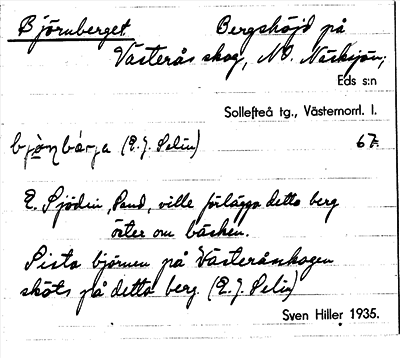 Björnberget Bergshöjd på
Västerås skog, NO. Näsksjön;
Eds s:n
Sollefteå tg., Västernorrl. l.
bjò̱ṇbárja (E.J. Selin) 67.
E. Sjödin, Sand, ville förlägga detta berg
öster om bäcken.
Sista björnen på Västeråsskogen
sköts på detta berg. (E.J. Selin)
Sven Hiller 1935.